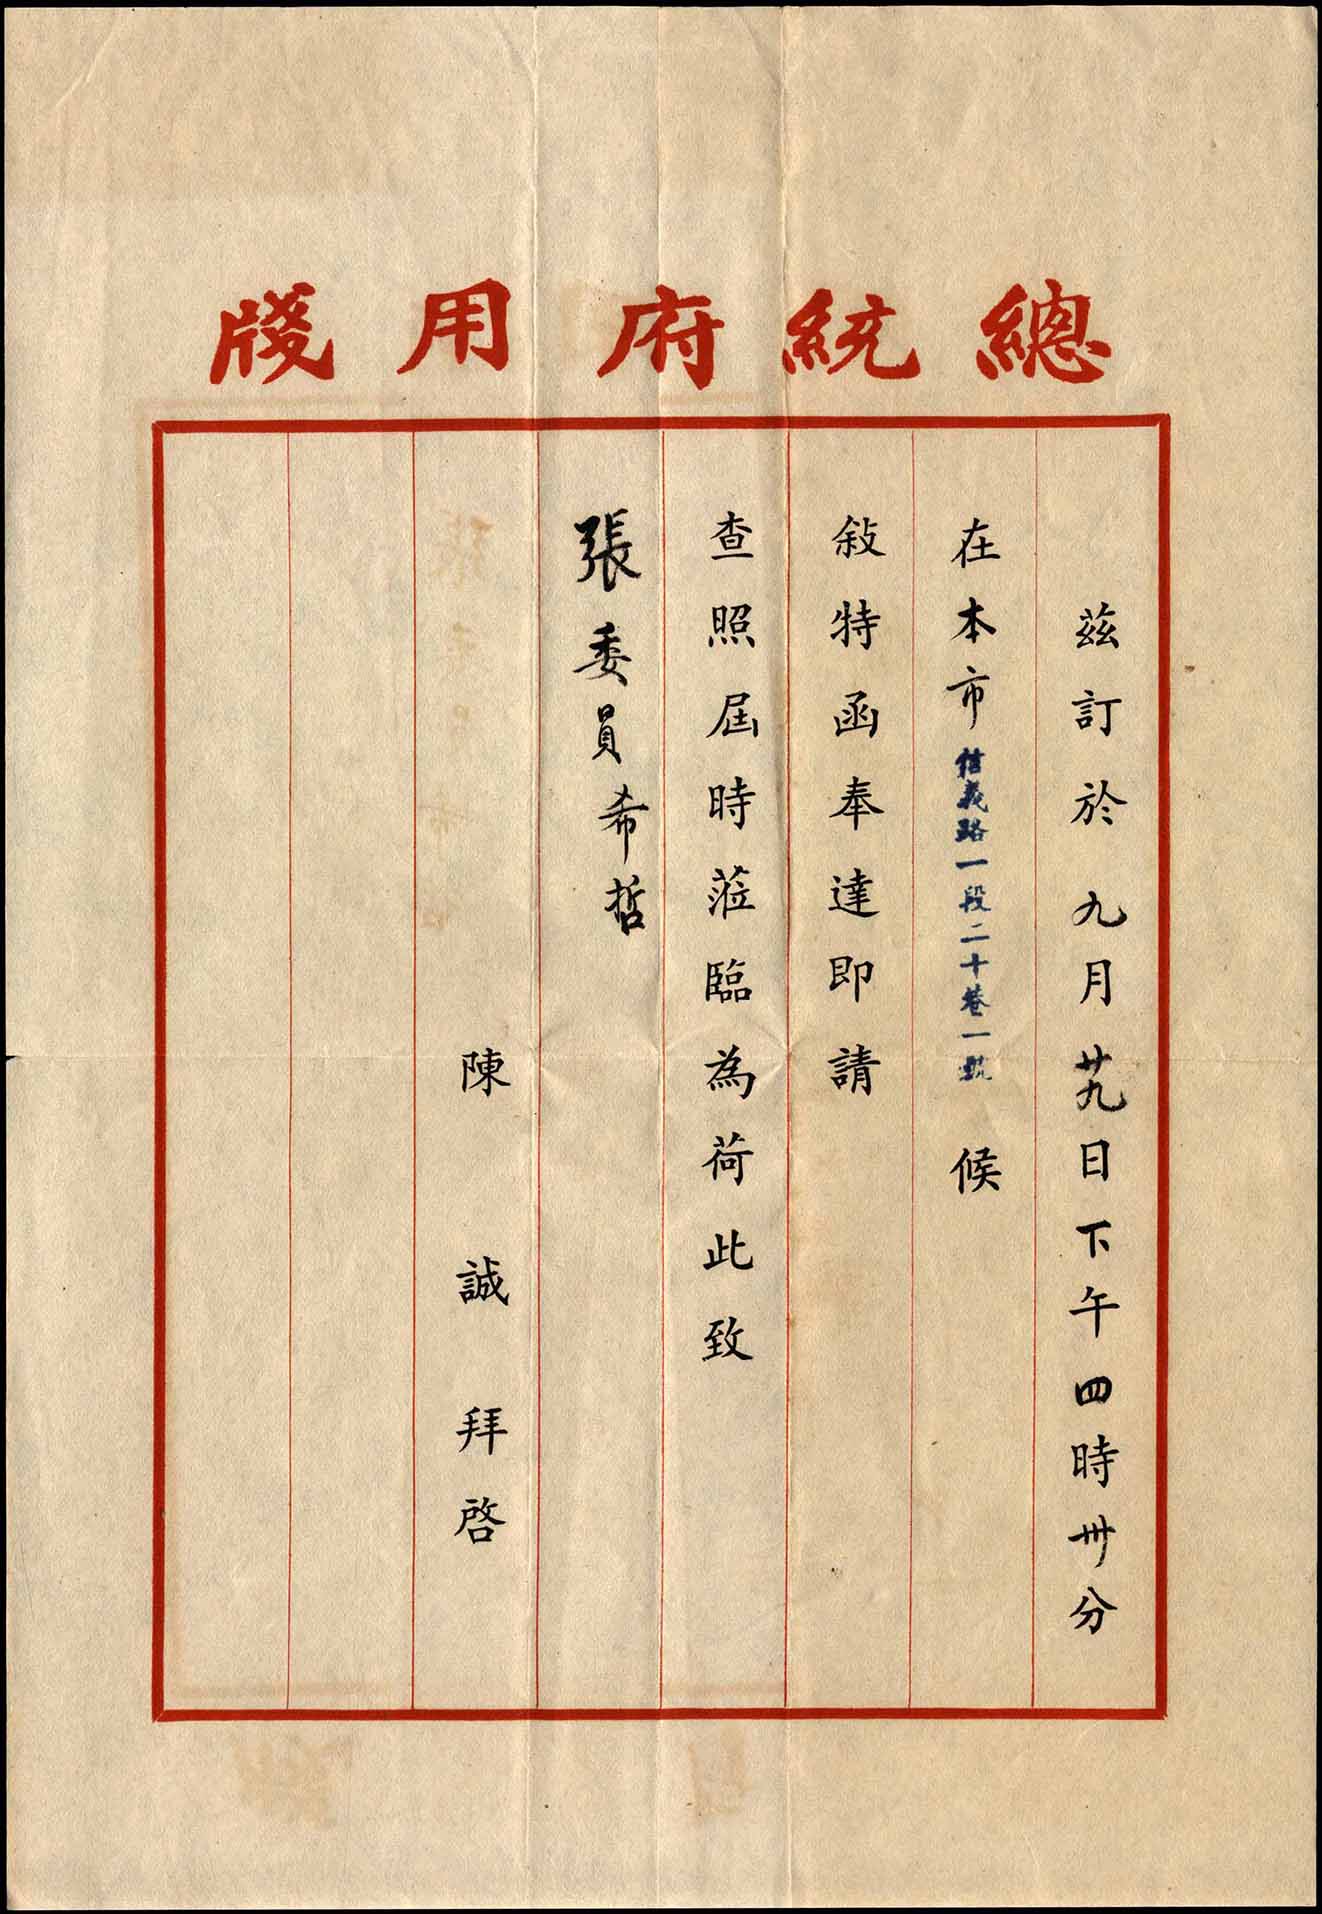 總統府用牋
茲訂於九月廿九日下午四時卅分
在本市信義路一段二十巷一號候
敍特函奉達即請
查照屆時蒞臨為荷此致
張委員希哲
陳誠拜啓